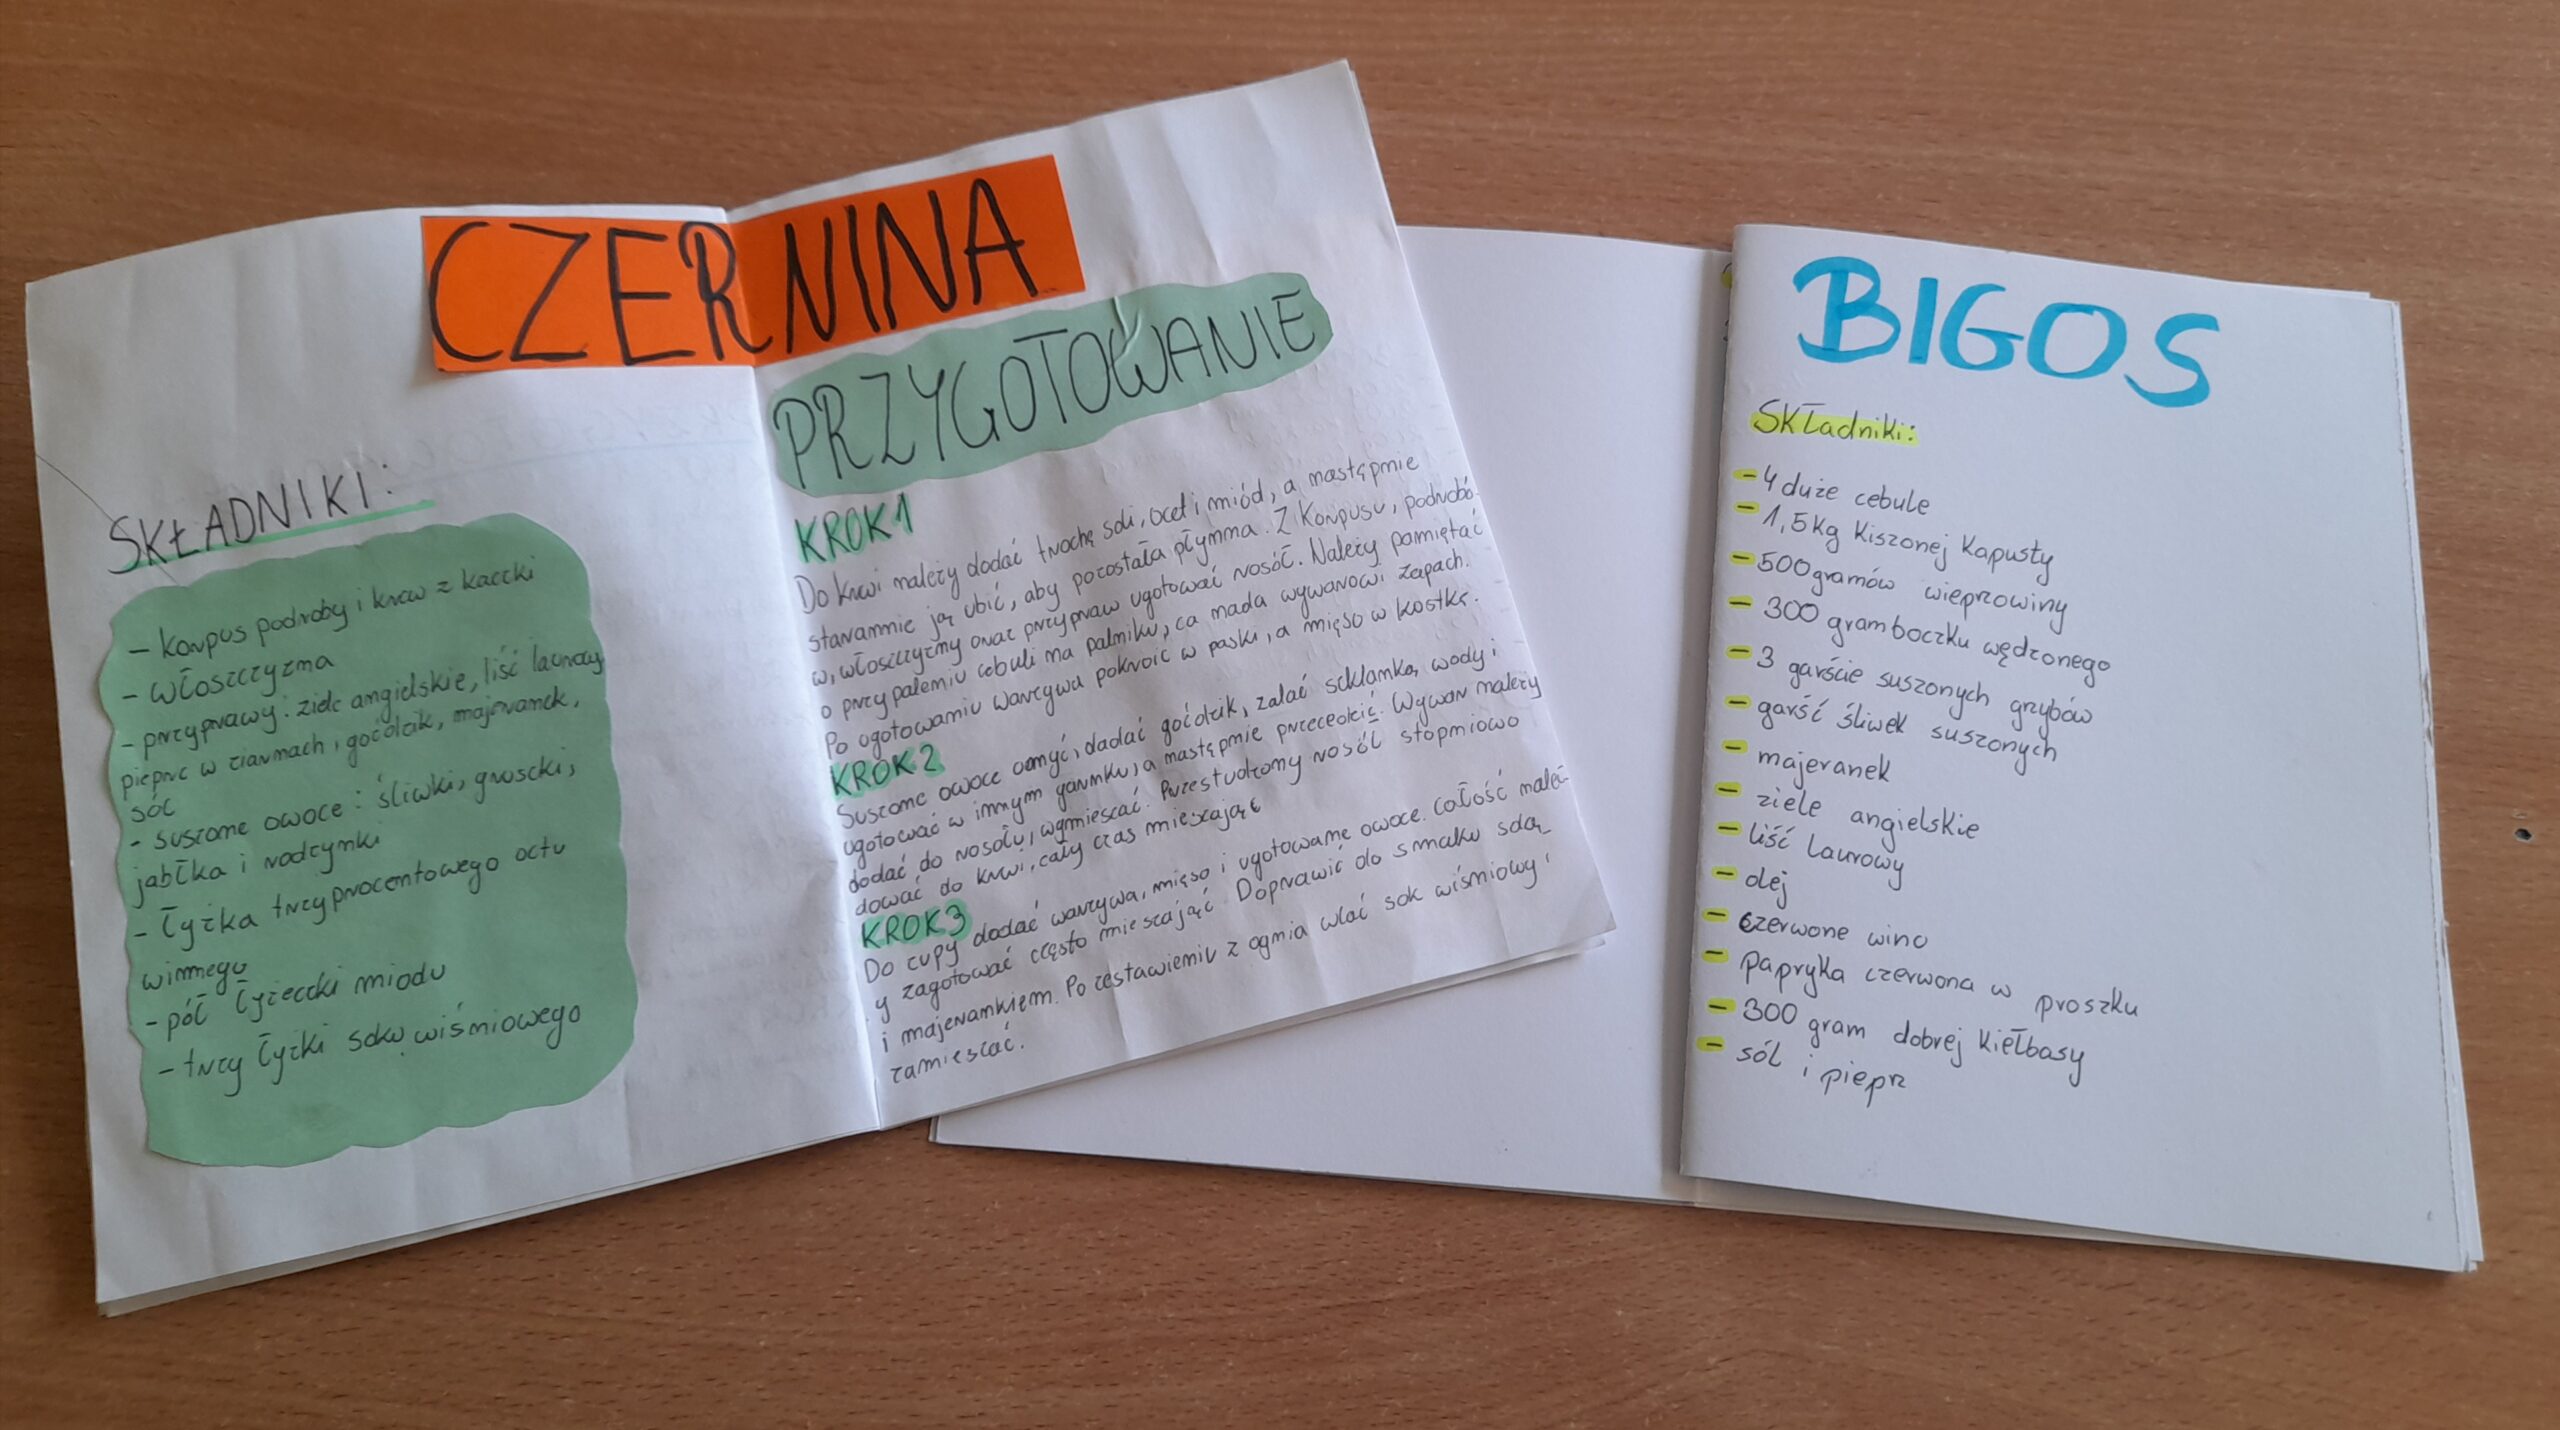 CZERNINA
SKŁADNIKI:
- korpus podroby i krew z kaczki
- włoszczyzna
- przyprawy: ziele angielskie, liść laurowy
pieprz w ziarnach, goździk, majeranek,
sól
- suszone owoce: śliwki, gruszki,
jabłka i rodzynki
- łyżka trzyprocentowego octu
winnego
- pół łyżeczki miodu
- trzy łyżki soku wiśniowego
PRZYGOTOWANIE
KROK 1
Do krwi należy dodać trochę soli, ocet i miód, a następnie
starannie ją ubić, aby pozostała płynna. Z korpusu, podrobó-
w, włoszczyzny oraz przypraw ugotować rosół. Należy pamiętać
o przypaleniu cebuli na palniku, co nada wywarowi zapach.
Po ugotowaniu warzywa pokroić w paski, a mięso w kostkę.
KROK 2
Suszone owoce umyć, dodać goździk, zalać szklanką wody i
ugotować w innym garnku, a następnie przecedzić. Wywar należy
dodać do rosołu, wymieszać. Przestudzony rosół stopniowo
dodać do krwi, cały czas mieszając
KROK 3
Do zupy dodać warzywa, mięso i ugotowane owoce. Całość należ-
y zagotować często mieszając. Doprawić do smaku solą
i majerankiem. Po zestawieniu z ognia wlać sok wiśniowy i
zamieszać.
BIGOS
Składniki:
- 4 duże cebule
- 1,5kg Kiszonej Kapusty
- 500gramów wieprzowiny
- 300 gram boczku wędzonego
- 3 garście suszonych grzybów
- garść śliwek suszonych
- majeranek
- ziele angielskie
- liść laurowy
- olej
- czerwone wino
- papryka czerwona w proszku
- 300 gram dobrej kiełbasy
- sól i pieprz